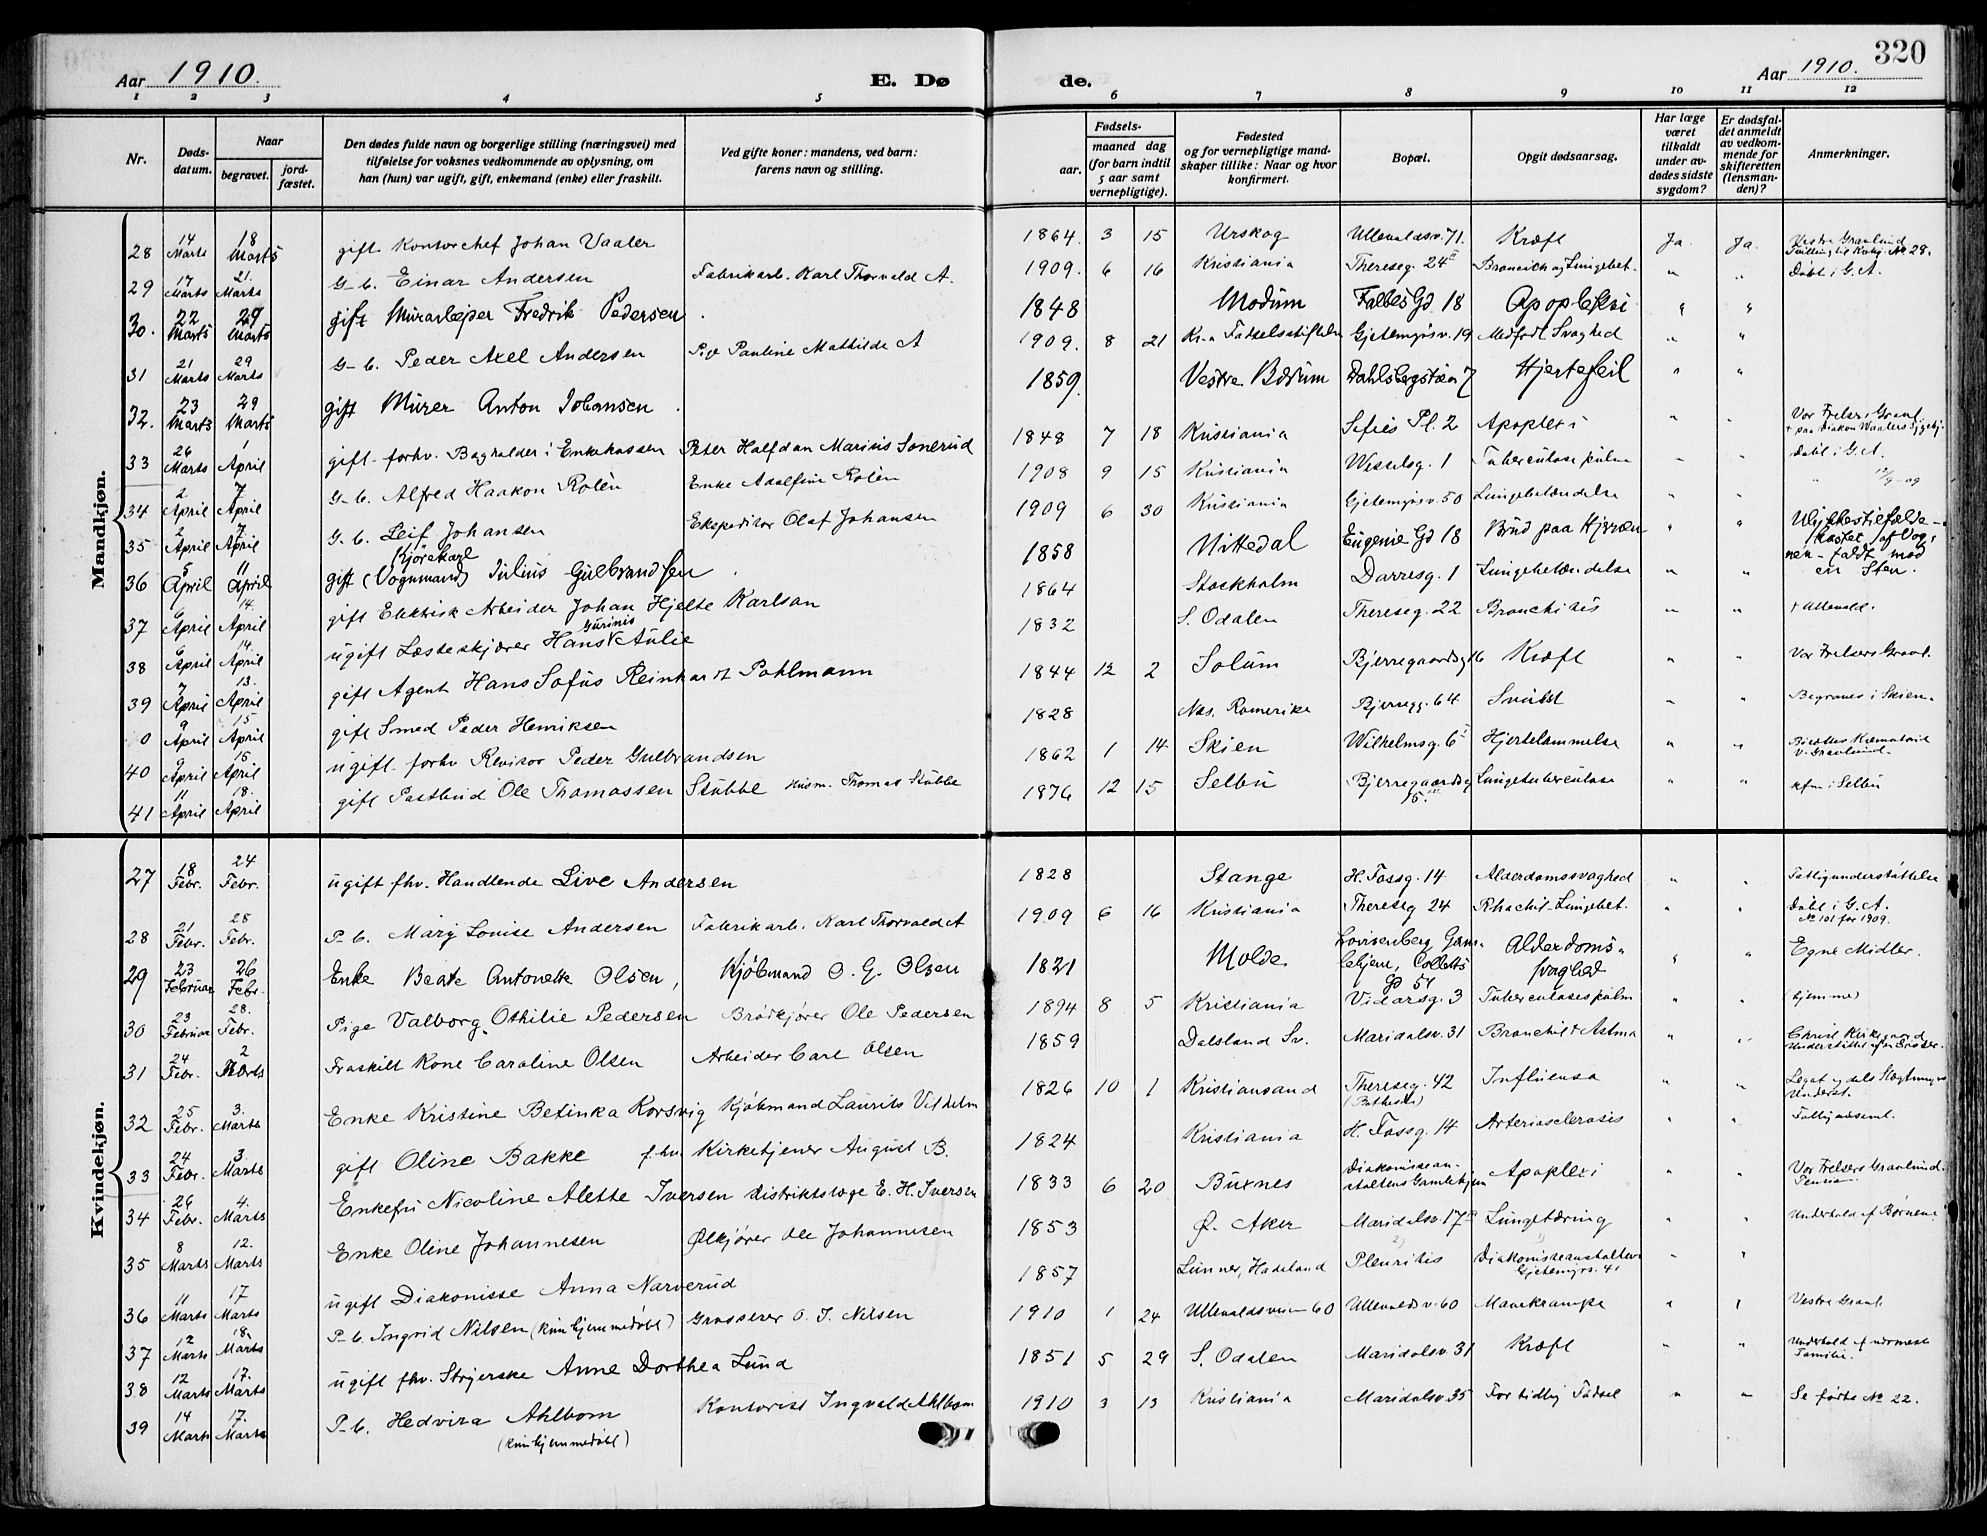 320
Aar 1910. E. Dø de. Aar 1910.
1 2 3 4 5 6 7 8 9 10 11 12
Nr.
Døds-
datum.
Naar
begravet.
jord-
fæstet.
Den dødes fulde navn og borgerlige stilling (næringsvei) med
tilføielse for voksnes vedkommende av oplysning, om
han (hun) var ugift, gift, enkemand (enke) eller fraskilt.
Ved gifte koner: mandens, ved barn:
farens navn og stilling.
Fødsels-
aar.
maaned dag
(for barn indtil
5 aar samt
vernepligtige).
Fødested
og for vernepligtige mand-
skaper tillike: Naar og hvor
konfirmert.
Bopæl.
Opgit dødsaarsag.
Har læge
været
tilkaldt
under av-
dødes sidste
sygdom?
Er dødsfal-
det anmeldt
av vedkom-
mende for
skifteretten
(lensman-
den)?
Anmerkninger.
Mandkjøn.
28 14 Marts 18 Marts gift Kontorchef Johan Vaaler 1864 3 15 Urskog Ullevaldsv. 71. Kræft Ja. Ja. Vestre Gravlund
29 17 Marts 21. Marts G-b. Einar Andersen Fabrikarb. Karl Thorvald A. 1909. 6 16 Kristiania Thereseg. 24 II Bronchit og Lungebet. " " Døbt i G.A.
30. 22 Marts 29 Marts gift Murarbejder Fredrik Pedersen 1848 Modum Falbes Gd 18 Apopleksi " "
31 21 Marts 29 Marts G-b. Peder Axel Andersen Pige Pauline Mathilde A 1909. 8 21 Kr.a Fødselsstiftelse Gjetemyrsv. 19 Medfødt Svaghed " "
32. 23 Marts 29 Marts gift Murer Anton Johansen 1859. Vestre Bærum Dahlsbergstien 7 Hjertefeil " "
33 26 Marts 1 April gift forhv. Bogholder i Enkekassen Peter Halfdan Marius Sonerud 1848 7 18 Kristiania Sofies Pl. 2 Apoplexi " " Vor Frelsers Gravl.
34 2 April 7 April G-b. Alfred Haakon Rolén Enke Adolfine Rolén 1908 9 15 Kristiania Wesselsg. 1 Tuberculose pulm " " Døbt i G.A.
35 2 April 7 April G-b. Leif Johansen Ekspeditør Olaf Johansen 1909 6 30 Kristiania Gjetemyrsv. 50 Lungebetændelse
36 5 April 11 April gift (Vognmand) Kjørekarl Julius Gulbrandsen 1858 Nittedal Eugenie Gd 18 Brud paa Hjernen " " Ulykkestilfælde - kastet af Vognen - faldt mod en Sten.
37 6 April 14. April gift Elektrisk Arbeider Johan Hjelte Karlson 1864 Stockholm Darresg. 1 Lungebetændelse " "
38 6 April 14. April ugift Læsteskjærer Hans Gurinis Aulie 1832 S. Odalen Thereseg. 22 Bronchitis " "
39 7 April 13. April gift Agent Hans Sofus Reinhardt Pohlmann 1844 12 2 Solum Bjerregaardsg 16 Kræft " " Vor Frelsers Gravl.
0 9 April 15 April gift Smed Peder Henriksen 1828 Næs. Romerike Bjerregg. 64 Svulst " " Begraves i Skien.
40 9 April 15 April ugift forhv Revisor Peder Gulbrandsen 1862 1 14 Skien Wilhelmsg. 6 I Hjertelammelse " "
41 11 April 18. April gift Postbud Ole Thomassen Stubbe Husm. Thomas Stubbe 1876 12 15 Selbu Bjerregaardsg 15. III Lungetuberculose " " kfm i Selbu
Kvindekjøn.
27 18 Febr. 24 Febr. ugift fhv. Handlende Live Andersen 1828 Stange H. Fossg. 14 Alderdomssvaghed " " Fattigunderstøttelse
28 21 Febr. 28 Febr. P-b. Mary Louise Andersen Fabrikarb. Karl Thorvald A 1909 6 16 Kristiania Thereseg 24 Rhachit-Lungebet. " " Døbt i G.A. № 101 for 1909.
29 23 Februar 26 Febr. Enke Beate Antonette Olsen, Kjøbmand O. G. Olsen 1821 Molde Lovisenberg Gamlehjem, Colletts Gd 51 Alderdomssvaghed " " Egne Midler.
30 23 Februar 28. Febr. Pige Valborg Othilie Pedersen Brødkjører Ole Pedersen 1894 8 5 Kristiania Vidarsg. 3 Tuberculosis pulm " " (hjemme)
31 24 Febr. 2 Marts Fraskilt Kone Caroline Olsen Arbeider Carl Olsen 1859 Dalsland Sv. Maridalsv. 31 Bronchit + Astma " "
32 25 Febr. 3. Marts Enke Kristine Betinka Korsvig Kjøbmand Laurits Vilhelm 1826 10 1 Kristiansand Thereseg. 42 Influensa " " Legat og dels Slægtninges Underst.
33 24 Febr. 3. Marts gift Oline Bakke fhv. Kirketjener August B. 1824 Kristiania H. Fossg. 14 Arteriosclerosis " "
34 26 Febr. 4. Marts Enkefru Nicoline Alette Iversen distriktslæge E. H. Iversen 1833 6 20 Buxnes Diakonisseanstaltens Gamlehjem Apoplexi " " Vor Frelsers Gravlund. Pension
35 8 Marts 12. Marts Enke Oline Johannesen Ølkjører Ole Johannesen 1853 Ø. Aker Maridalsv. 17 Lungetæring " " Underhold af Børnene
36 11 Marts 17 Marts ugift Diakonisse Anna Narverud 1857 Lunner, Hadeland Pleuritis Diakonisseanstalten Gjetemyrs. 41 " "
37 12 Marts 18. Marts P-b. Ingrid Nilsen (kun hjemmedøbt) Grosserer O. J. Nilsen 1910 1 24 Ullevaldsveien 60 Ullevaldsv. 60 Mavekrampe " " Vestre Gravl.
38 12 Marts 17. Marts ugift fhv. Strjerske Anne Dorthea Lund 1851 5 29 S. Odalen Maridalsv. 31 Kræft " " Underhold af nærmeste Familie.
39 14 Marts 17. Marts P-b. Hedvira Ahlbom (kun hjemmedøbt) Kontorist Ingvald Ahlbom 1910 3 13 Kristiania Maridalsv. 35 For tidlig Fødsel " " Se førte № 22.